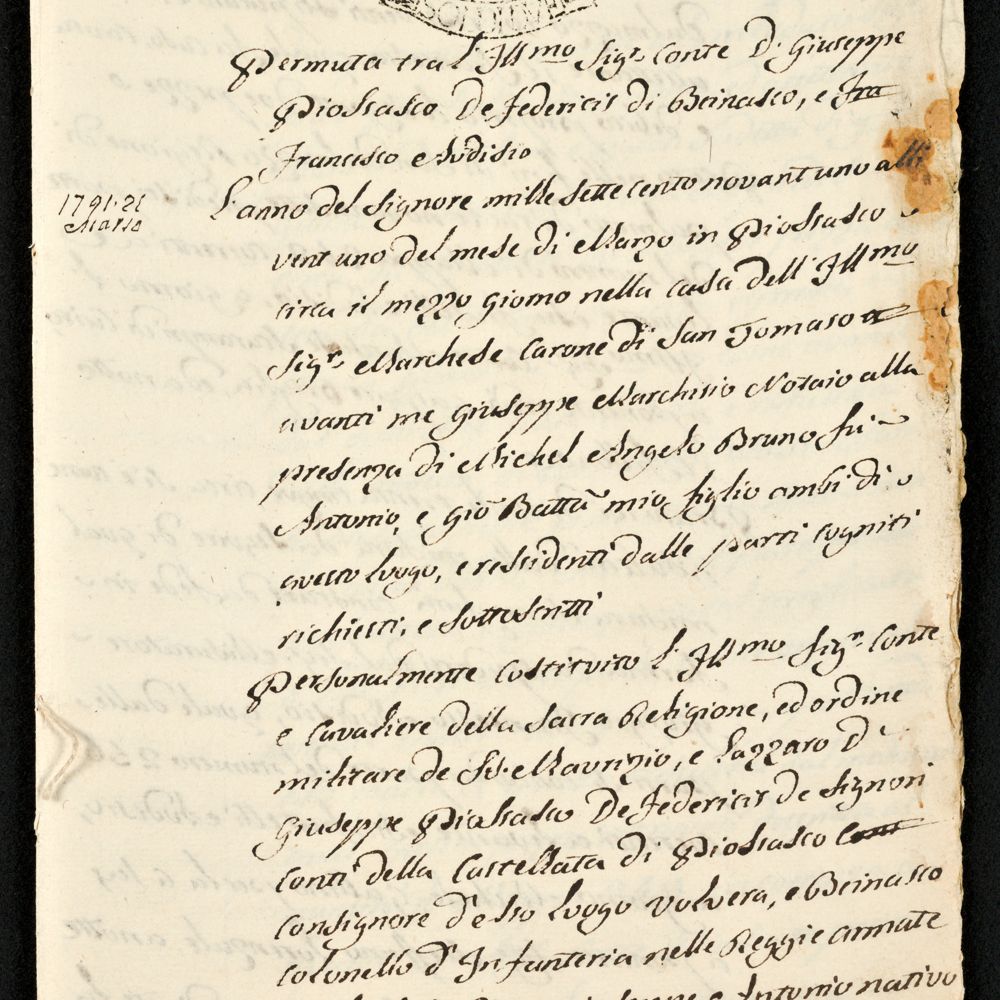 Permuta tra l' Illmo Sigr. Conte D. Giuseppe
Piossasco De Federicis di Beinasco, e Fra
Francesco Audisio
1791. 21
Marzo
L'anno del Signore mille sette cento novant uno alli
vent uno del mese di Marzo in Piossasco
circa il mezzo giorno nella casa dell' Illmo
Sigr. Marchese Carone di San Tomaso
avanti me Giuseppe Marchisio Notaio alla
presenza di Michel Angelo Bruno fu
Antonio, e Gio Batta mio figlio ambi di
questo luogo, e ressidenti dalle parti cogniti
richiesti, e sottoscritti
Personalmente costituito l' Illmo Sigr. Conte
e Cavaliere della Sacra Religione, ed ordine
militare de SS. Maurizio, e Lazzaro D.
Giuseppe Piossasco De Federicis de Signori
Conti della Castellata di Piossasco Cons
Consignore d'esso luogo Volvera, e Beinasco
Colonello d' Infanteria nelle Reggie armate
e Antonio nativo